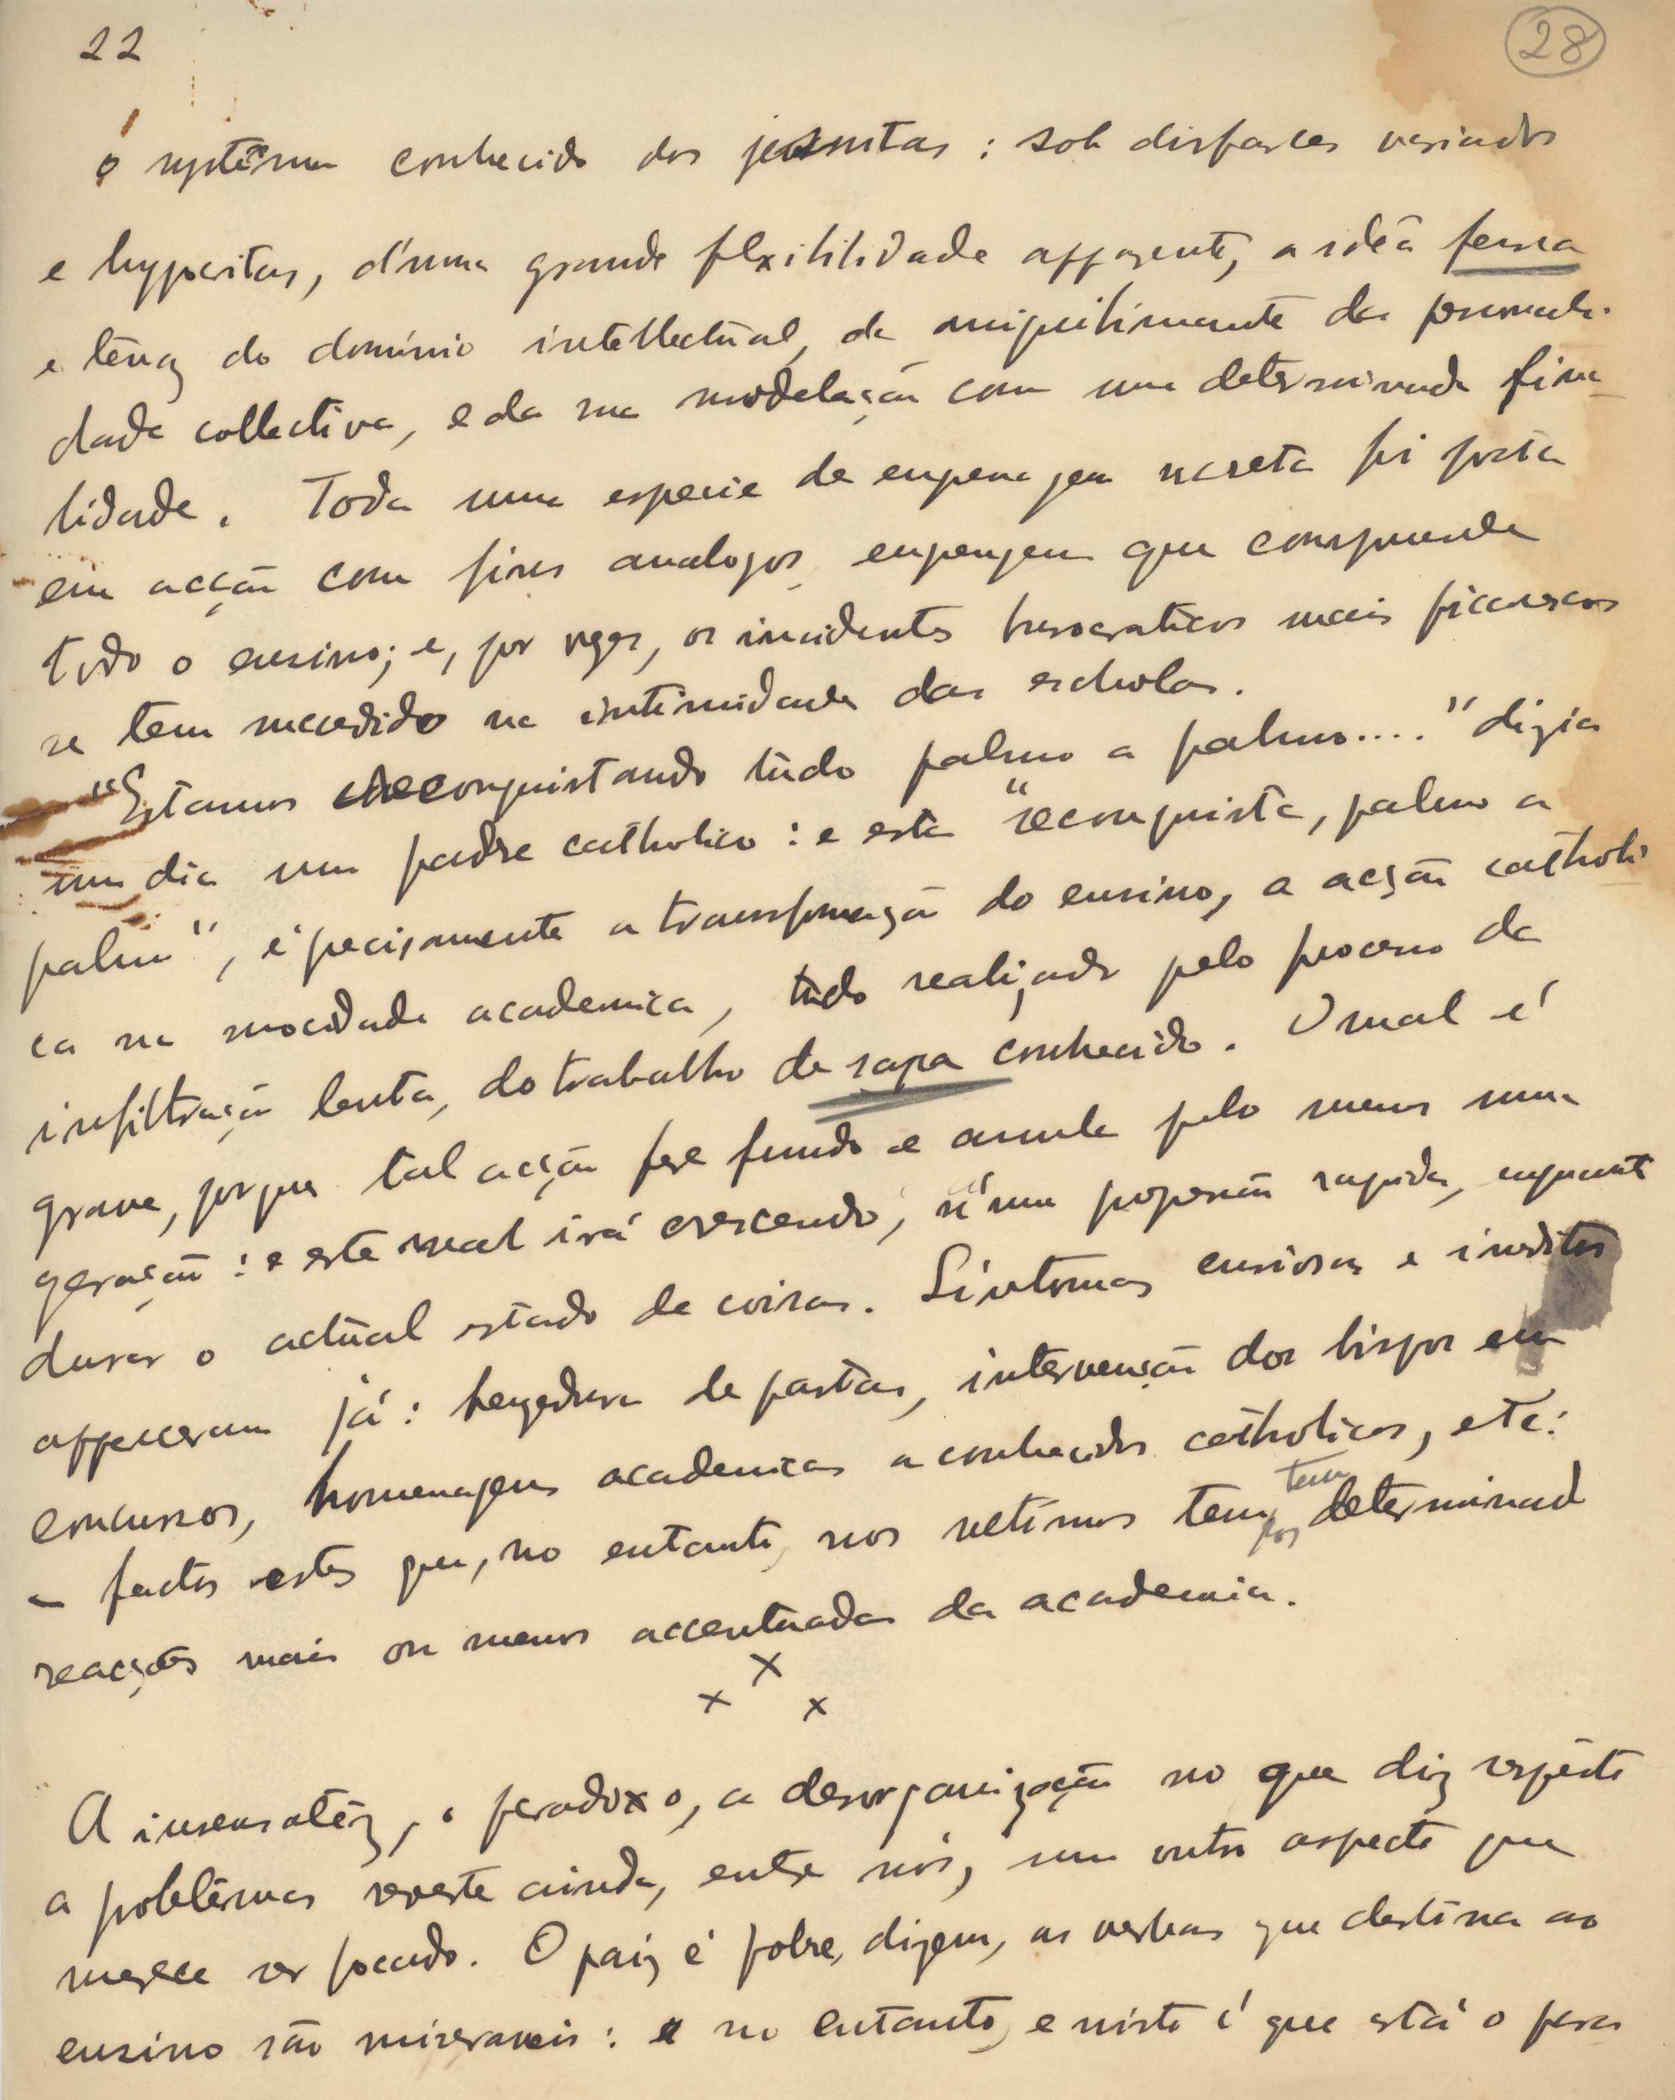 22
28
o systema conhecido dos jesuitas : sob disfarces variados
e hypocritas, d'uma grande flexibilidade apparente, a idéa ferrea
e tenaz do dominio intellectual, de aniquilimento da personali-
dade collectiva, e da sua modelação com uma determinada fina-
lidade. Toda uma especie de engenagem secreta foi posta
em acção com fins analogos, engenagem que comprehende
todo o ensino; e, por vezes, os incidentes burocraticos mais picarescos
se tem succedido na intimidade das escholas.
"Estamos reconquistando tudo palmo a palmo...." dizia
um dia um padre catholico : e esta "reconquista, palmo a
palmo", é precisamente a transformação do ensino, a acção catholi-
ca na mocidade academica, tudo realizado pelo processo da
infiltração lenta, do trabalho de sapa conhecido. O mal é
grave, porque tal acção fere fundo e annula pelo menos uma
geração : e este mal irá crescendo, n'uma proporção rapida, emquanto
durar o actual estado de coisas. Sintomas curiosos e ineditos
appareceram já : benzedura de pastas, intervenção dos bispos em
concursos, homenagens academicas a conhecidos catholicos, etc:
- factos estes que, no entanto, nos ultimos tempos tem determinado
reacções mais ou menos accentuadas da academia.
x x x
A insensatêz, o paradoxo, a desorganização no que diz respeito
a problemas reveste ainda, entre nós, um outro aspecto que
merece ser focado. O paiz é pobre, dizem, as verbas que destina ao
ensino são miseraveis : e no entanto, e nisto é que está o para